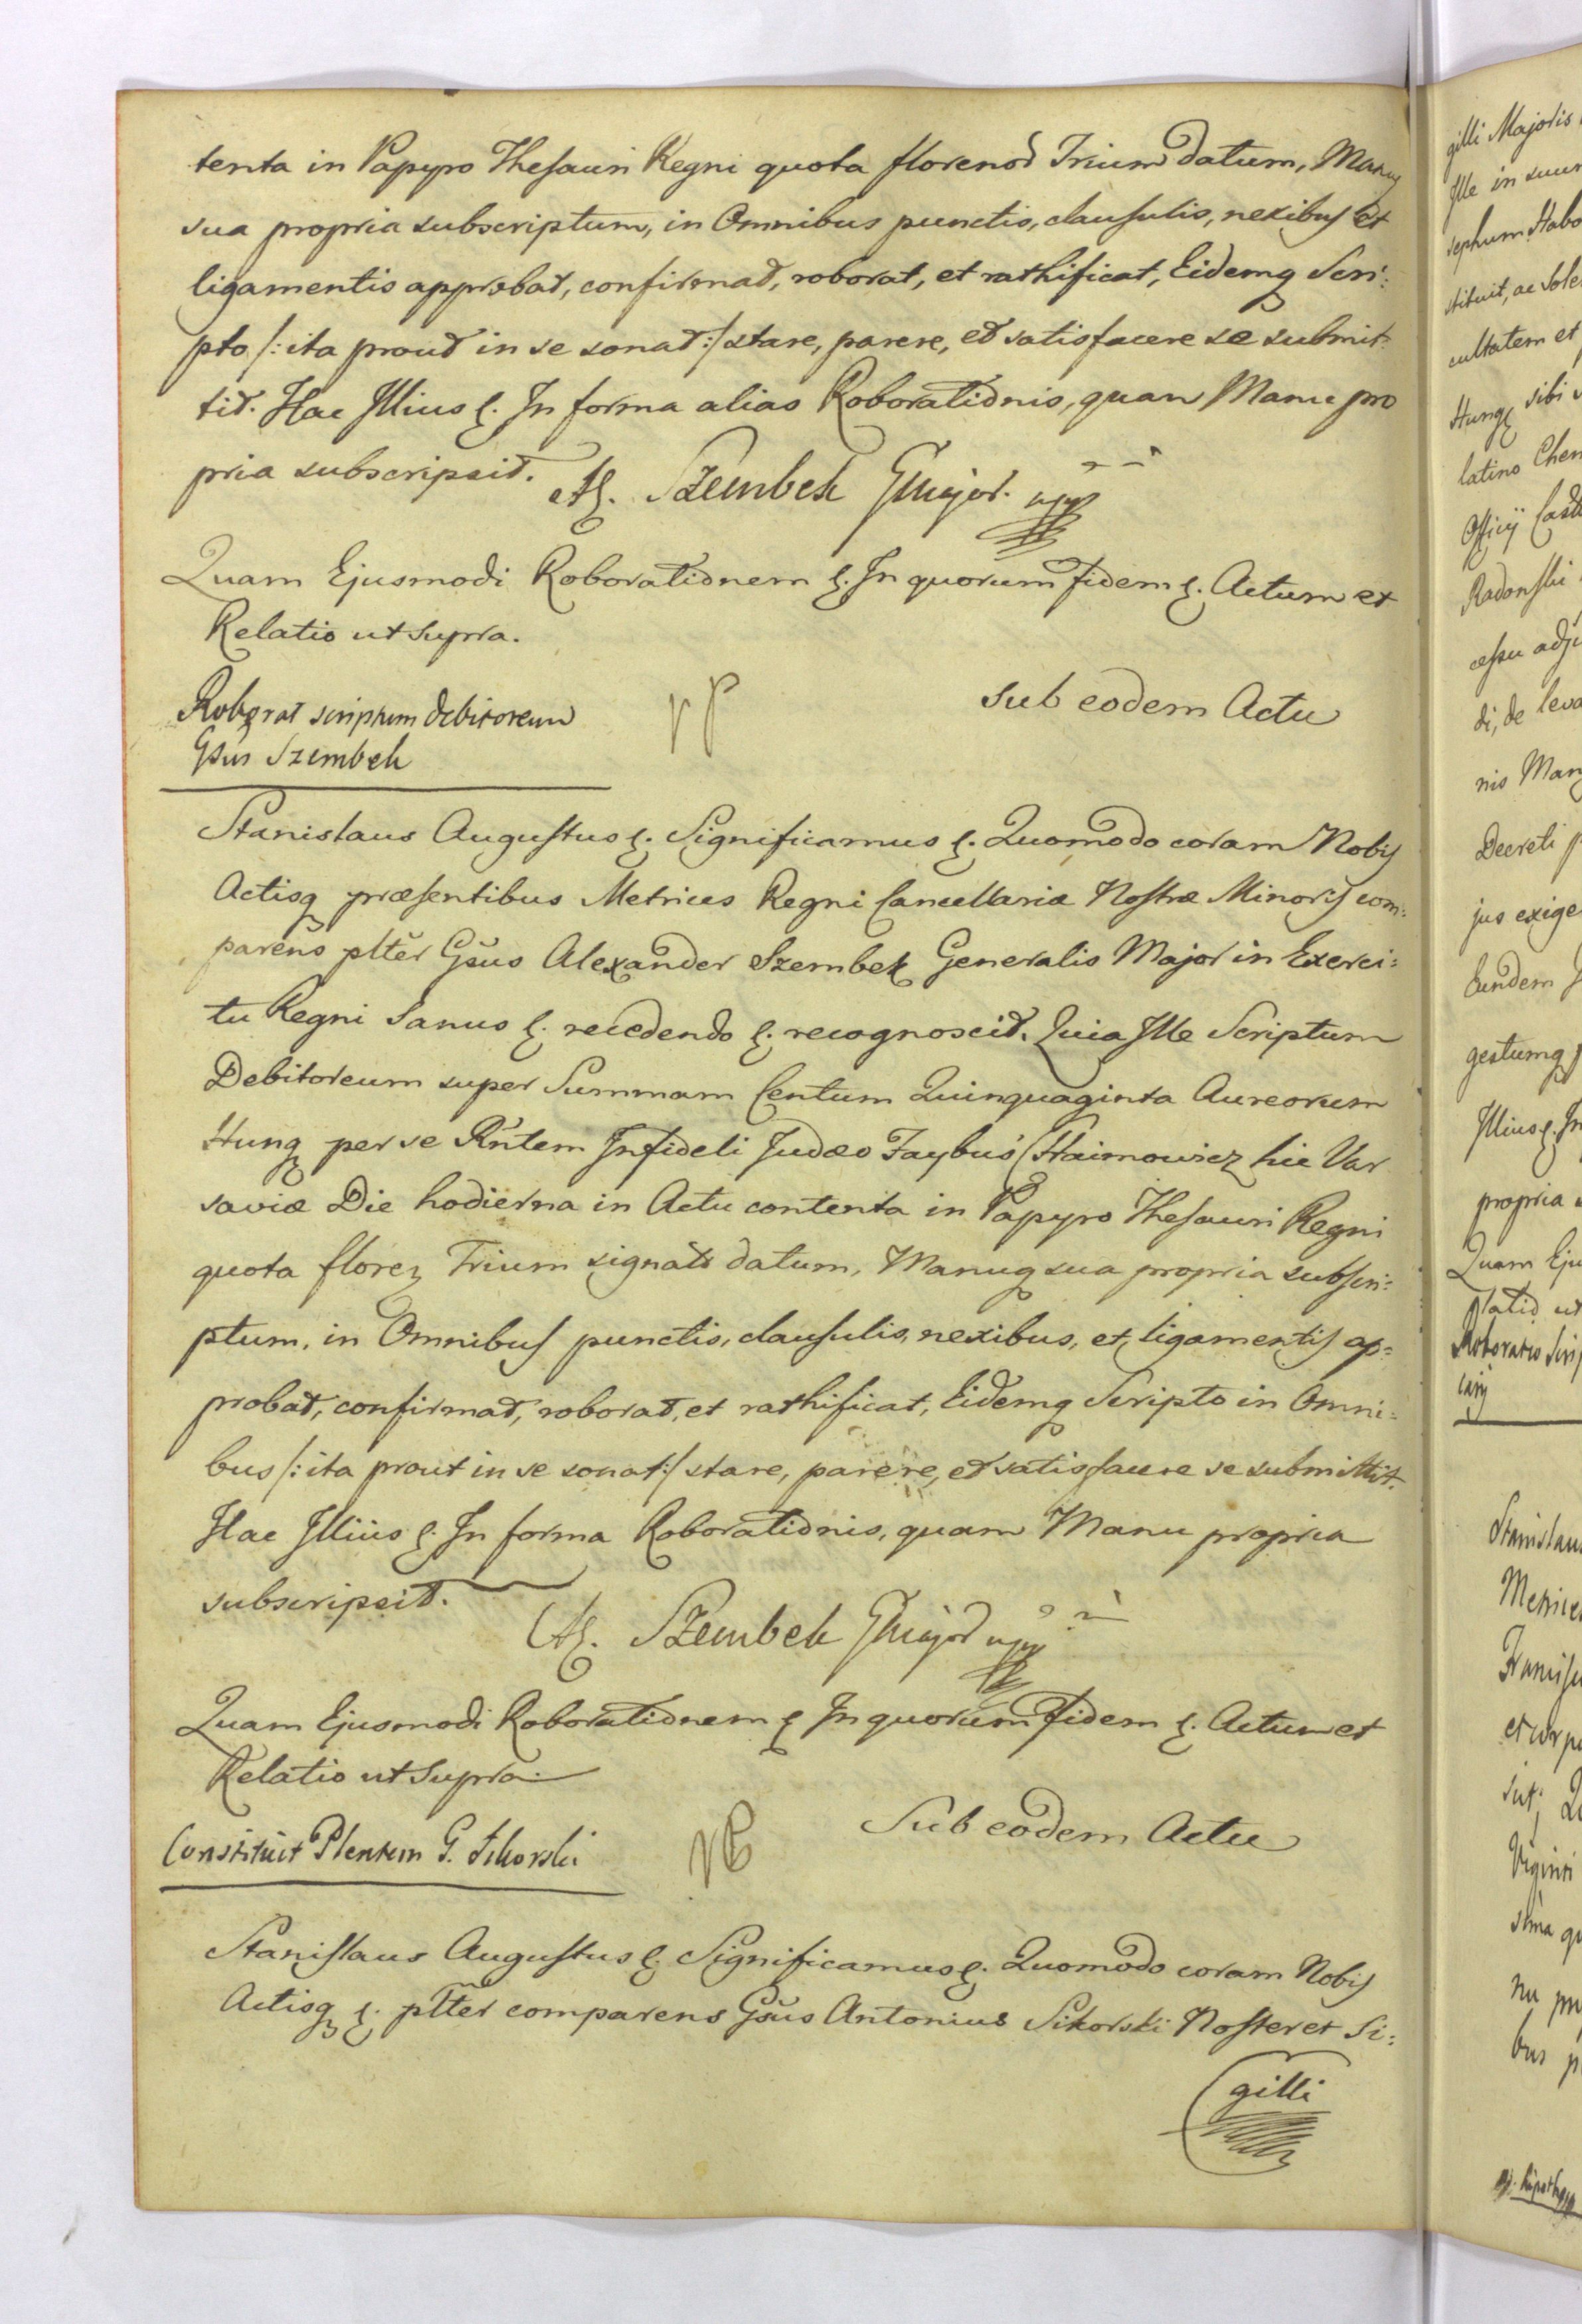 tenta in Papyro Thesauri Regni quota florenos Trium datum, Manuq
sua propria subscriptum, in Omnibus punctis, clausulis, nexibus et
ligamentis approbat, confirmat, roborat, et rathificat, Eidemq Scri:
pto /: ita prout in se sonat :/ stare, parere, et satisfacere se submit:
tit. Hac Illius &. In forma alias Roborationis, quam Manu pro
pria subscripsit. Al. Szembek GMajor. mpp
Quam Ejusmodi Roborationem &. In quorum fidem &. Actum et
Relatio ut supra.
Roborat scriptum debitoreum
Gsus Szembek
Sub eodem Actu
Stanislaus Augustus &. Significamus &. Quomodo coram Nobis
Actisq præsentibus Metrices Regni Cancellariæ Nostræ Minoris com:
parens plter Gsus Alexander Szembek Generalis Major in Exerci:
tu Regni Sanus &. recedendo &. recognoscit. Quia Ille Scriptum
Debitoreum super Summam Centum Quinquaginta Aureorum
Hung per se Rntem Infideli Judæo Faybus Haimowicz hic Var
saviæ Die hodierna in Actu contenta in Papyro Thesauri Regni
quota florez Trium signati datum, Manuq sua propria subscri:
ptum, in Omnibus punctis, clausulis, nexibus, et ligamentis ap:
probat, confirmat, roborat, et rathificat, Eidemq Scripto in Omni:
bus /: ita prout in se sonat :/ stare, parere, et satisfacere se submittit.
Hac Illius &. In forma Roborationis, quam Manu propria
subscripsit.
Al. Szembek GMajor mpp
Quam Ejusmodi Roborationem & In quorum fidem &. Actum et
Relatio ut supra.
Constituit Plentem G. Sikorski
Sub eodem Actu
Stanislaus Augustus &. Significamus &. Quomodo coram Nobis
Actisq &. plter comparens Gsus Antonius Sikorski Noster et Si:
gilli
gilli Majoris
Ille in suum
sephum
stituit, ac Sole
cultatem et
Hung sibi
latino Chen
Officij Cast
Radonski
cessu adju
di, de leva
nis Man
Decreti
jus exige
Eundem
gestumq
Illius &. In
propria
Quam Eju
latio ut
Roboratio Scrip
Stanislau
Metrice
Francis
et corp
Viginti
bus p